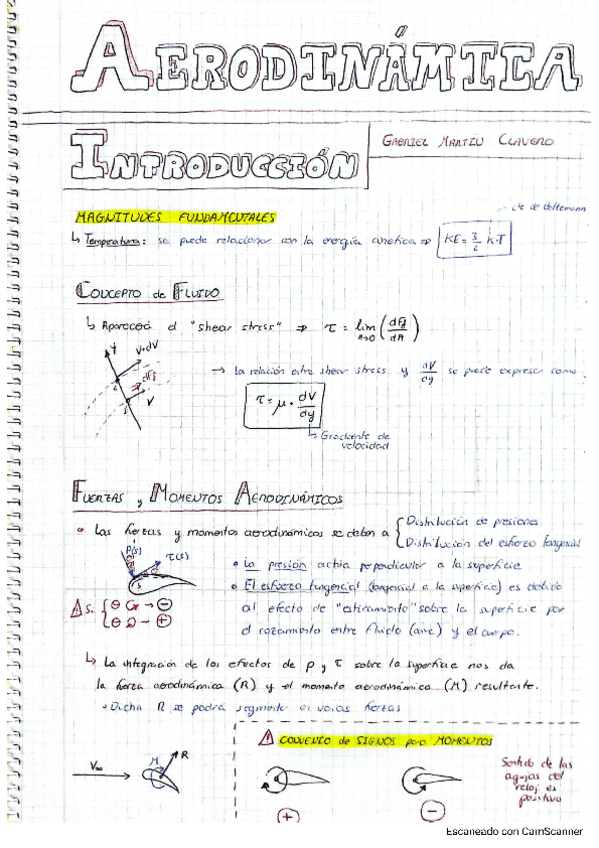 AERODINÁMICA
INTRODUCCIÓN
GABRIEL MARTIN CLAVERO
MAGNITUDES FUNDAMENTALES
cte de Boltzmann
↳ Temperatura: se puede relacionar con la energía cinética ⇒ KE = 3/2 k·T
CONCEPTO de FLUIDO
↳ Aparecerá el "shear stress" ⇒ τ = lim A→0 (dFf/dA)
y
V+dV
dFf
2
1
V
→ la relación entre shear stress y dV/dy se puede expresar como
τ = μ · dV/dy
↳ Gradiente de
velocidad
FUERZAS y MOMENTOS AERODINÁMICOS
• Las fuerzas y momentos aerodinámicos se deben a { Distribución de presiones
Distribución del esfuerzo tangencial
P(s)
τ(s)
s
• La presión actúa perpendicular a la superficie
• El esfuerzo tangencial (tangencial a la superficie) es debido
al efecto de "estiramiento" sobre la superficie por
el rozamiento entre fluido (aire) y el cuerpo.
⚠ Si {
↳ La integración de los efectos de p y τ sobre la superficie nos da
la fuerza aerodinámica (R) y el momento aerodinámico (M) resultante.
• Dicha R se podrá segmentar en varias fuerzas
⚠ CONVENIO de SIGNOS para MOMENTOS
V∞
M
R
Sentido de las
agujas del
reloj es
positivo
+
−
Escaneado con CamScanner